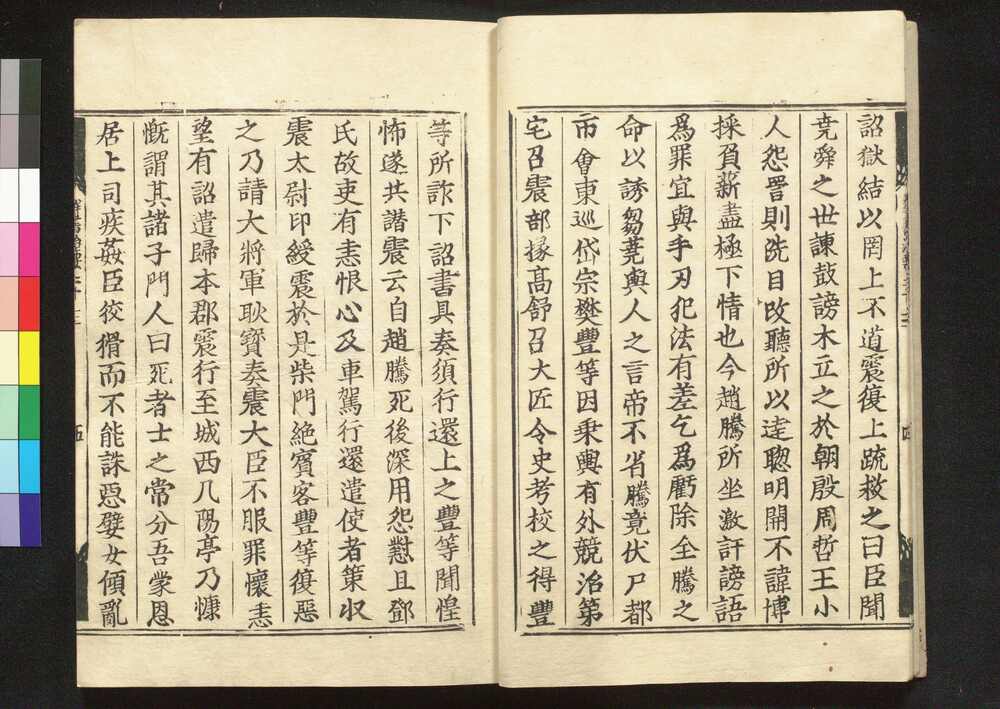 詔獄結以罔上不道震復上疏救之曰臣聞
堯舜之世諫鼓謗木立之於朝殷周哲王小
人怨詈則洗目改聽所以達聦明開不諱博
採負薪盡極下情也今趙騰所坐激訐謗語
爲罪宜與手刃犯法有差乞爲虧除全騰之
命以誘芻蕘輿人之言帝不省騰竟伏尸都
市會東巡岱宗樊豐等因乗輿有外競治第
宅召震部掾高舒召大匠令史考校之得豐
等所詐下詔書具奏須行還上之豐等聞惶
怖遂共譖震云自趙騰死後深用怨懟且鄧
氏故吏有恚恨心及車駕行還遣使者策収
震太尉印綬震於是柴門絶賓客豐等復惡
之乃請大將軍耿寳奏震大臣不服罪懷恚
望有詔遣歸本郡震行至城西几陽亭乃慷
慨謂其諸子門人曰死者士之常分吾蒙恩
居上司疾姦臣狡猾而不能誅惡嬖女傾亂